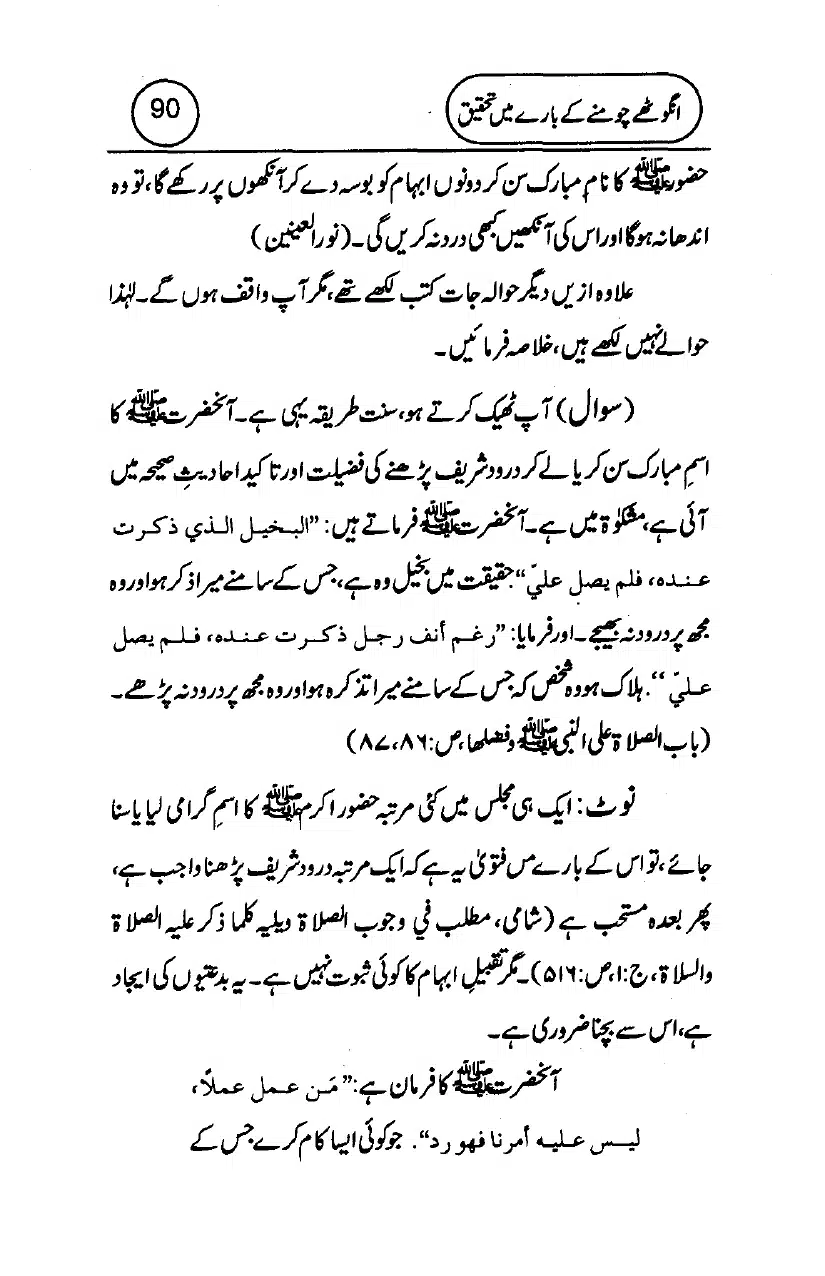 انگوٹھے چومنے کے بارے میں تحقیق
90
حضور ﷺ کا نام مبارک سن کر دونوں ابہام کو بوسہ دے کر آنکھوں پر رکھے گا، تو وہ
اندھا نہ ہوگا اور اس کی آنکھیں کبھی درد نہ کریں گی۔ (نور العینین)
علاوہ ازیں دیگر حوالہ جات کتب لکھے تھے، مگر آپ واقف ہوں گے۔ لہٰذا
حوالے نہیں لکھے ہیں، خلاصہ فرمائیں۔
(سوال) آپ ٹھیک کرتے ہو، سنت طریقہ یہی ہے۔ آنحضرت ﷺ کا
اسمِ مبارک سن کر یا لے کر درود شریف پڑھنے کی فضیلت اور تاکید احادیثِ صحیحہ میں
آئی ہے، مشکوٰۃ میں ہے۔ آنحضرت ﷺ فرماتے ہیں: ”البخيل الذي ذكرت
عنده، فلم يصل عليّ“ حقیقت میں بخیل وہ ہے، جس کے سامنے میرا ذکر ہو اور وہ
مجھ پر درود نہ بھیجے۔ اور فرمایا: ”رغم أنف رجل ذكرت عنده، فلم يصل
عليّ“. ہلاک ہو وہ شخص کہ جس کے سامنے میرا تذکرہ ہو اور وہ مجھ پر درود نہ پڑھے۔
(باب الصلاۃ علی النبی ﷺ وفضلھا، ص: ۸۶، ۸۷)
نوٹ: ایک ہی مجلس میں کئی مرتبہ حضور اکرم ﷺ کا اسمِ گرامی لیا یا سنا
جائے، تو اس کے بارے میں فتویٰ یہ ہے کہ ایک مرتبہ درود شریف پڑھنا واجب ہے،
پھر بعدہ مستحب ہے (شامی، مطلب في وجوب الصلاة ويليه كلما ذكر عليه الصلاة
والسلاۃ، ج: ۱، ص: ۵۱۶)۔ مگر تقبیلِ ابہام کا کوئی ثبوت نہیں ہے۔ یہ بدعتیوں کی ایجاد
ہے، اس سے بچنا ضروری ہے۔
آنحضرت ﷺ کا فرمان ہے: ”مَن عمل عملاً،
ليس عليه أمرنا فهو رد“. جو کوئی ایسا کام کرے جس کے